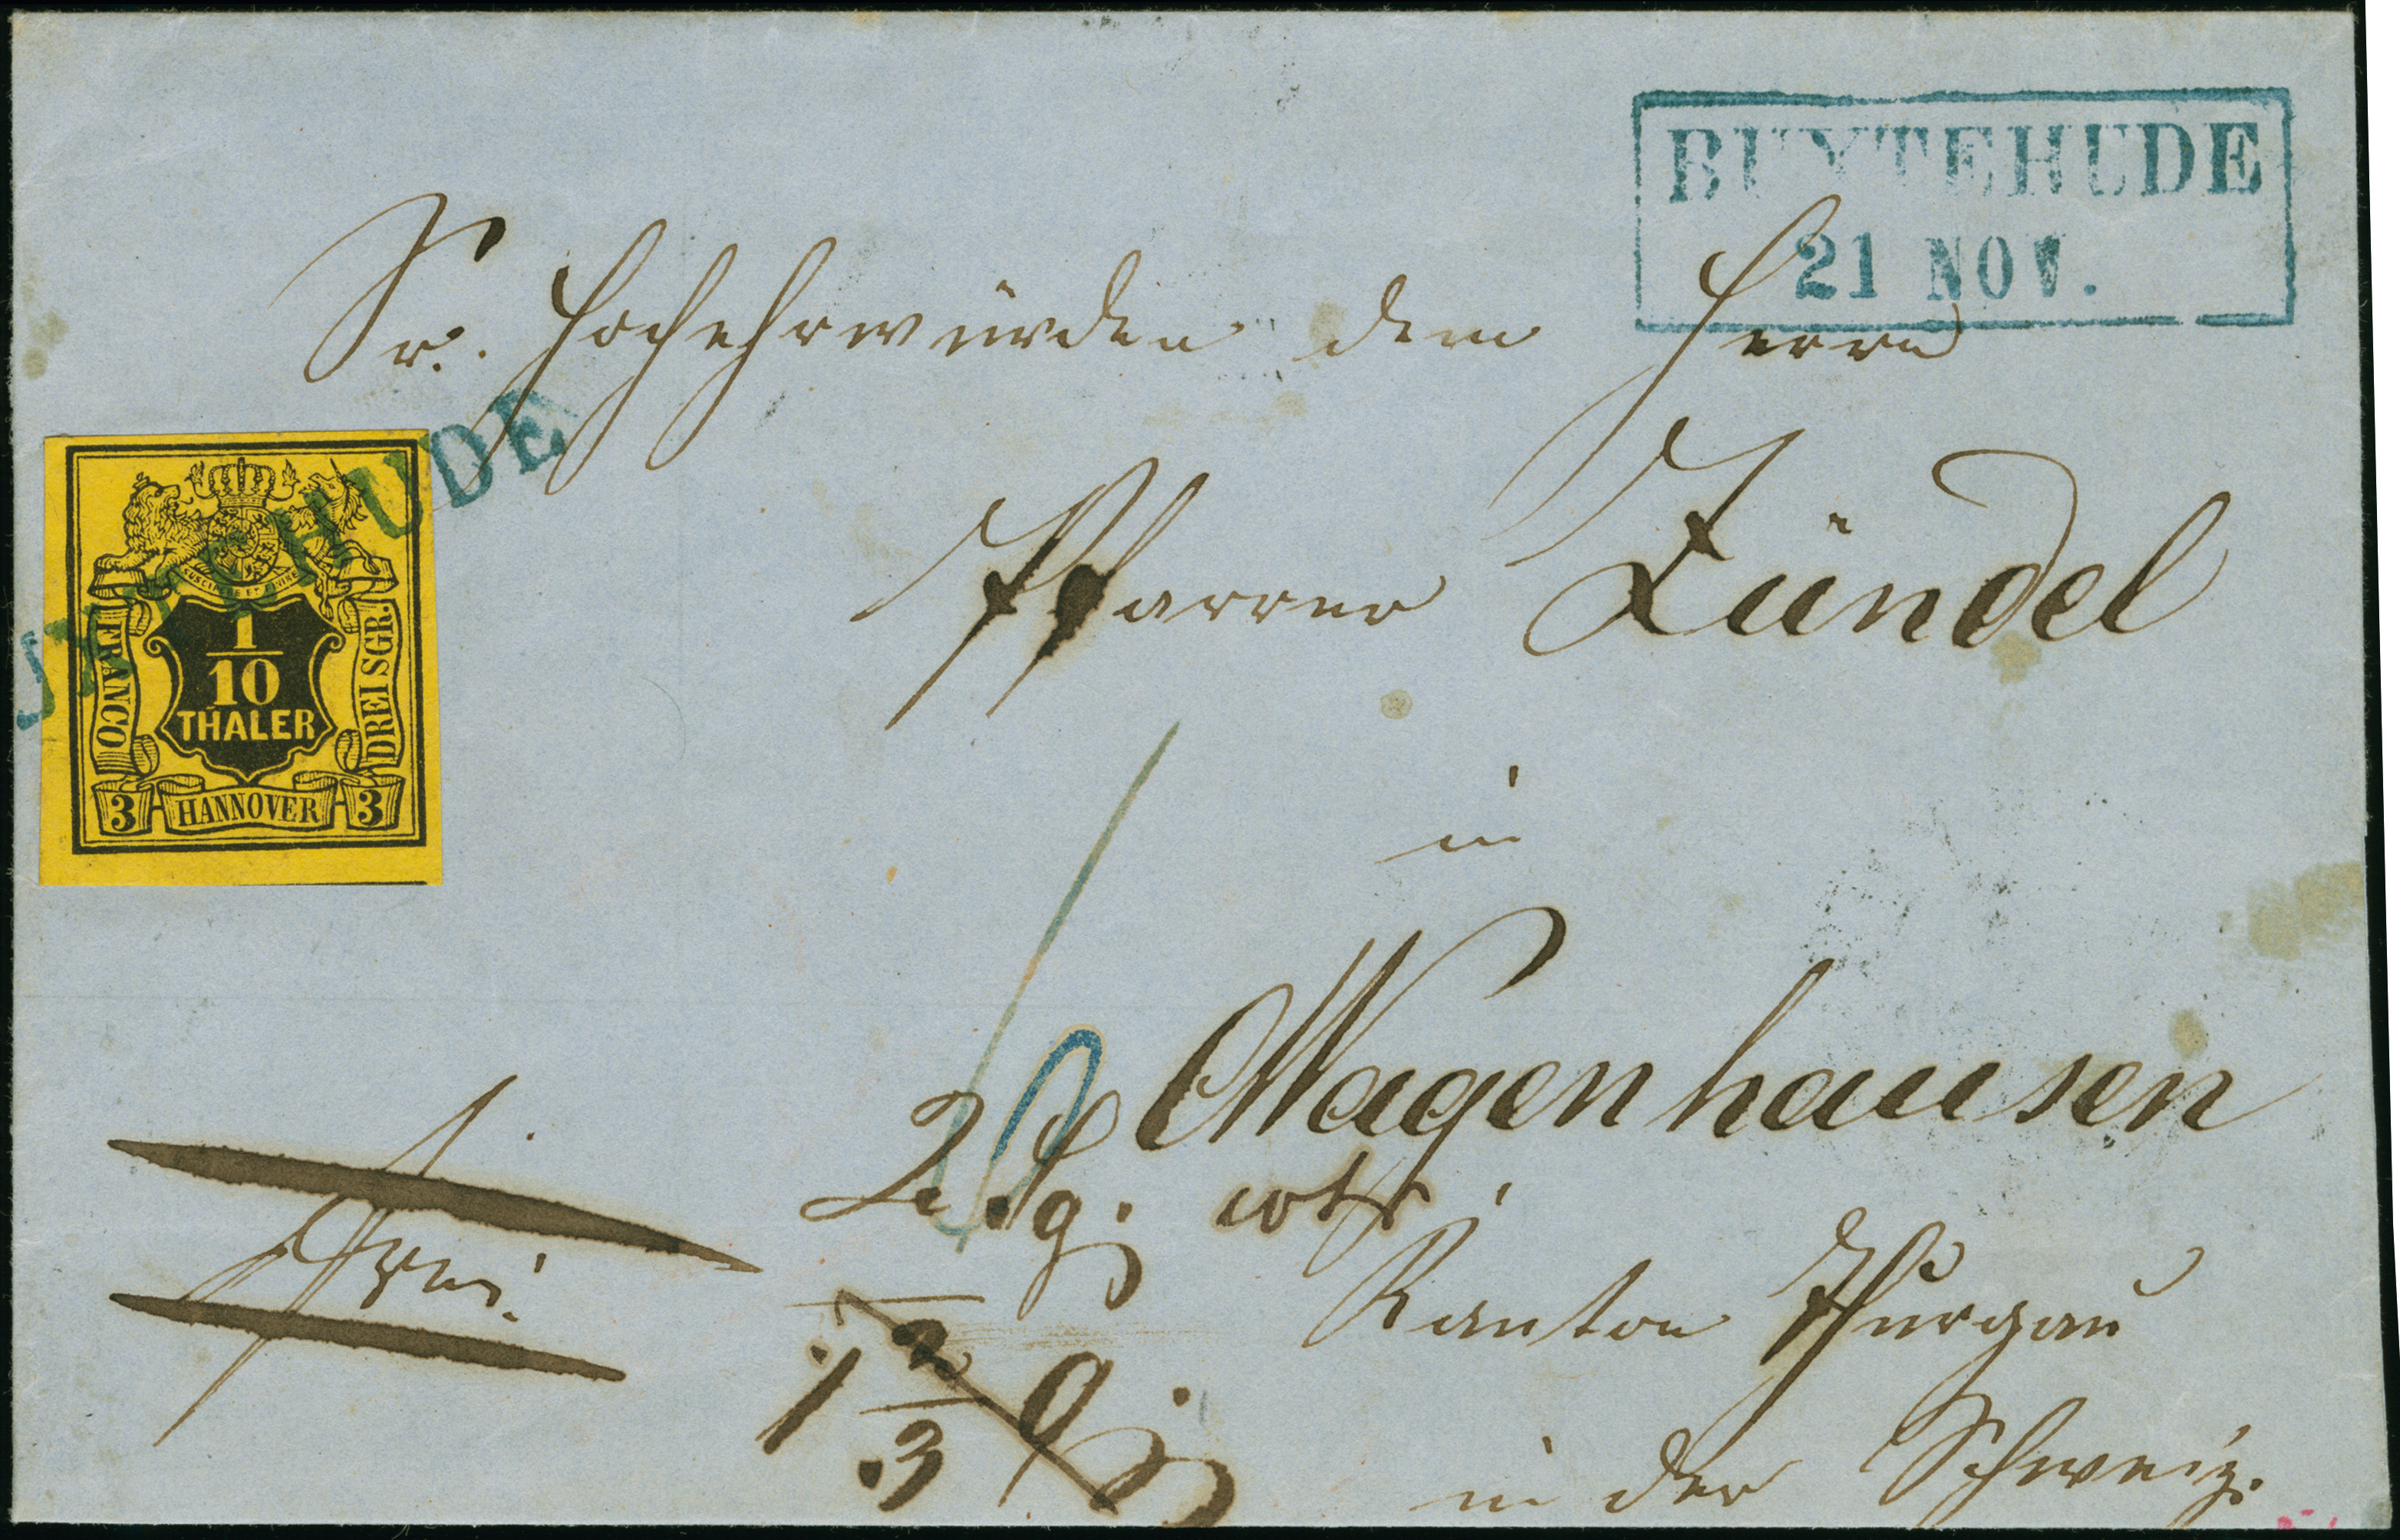 BUXTEHUDE
21 NOV.
Sr. Hochehrwürden dem Herrn
Pfarrer Zündel
in
Wagenhausen
Kanton Thurgau
in der Schweiz.
frei.
UXTEHUDE
SUSCIPERE ET FINIRE
FRANCO
1/10
THALER
DREI SGR.
3 HANNOVER 3
2
1 2/3